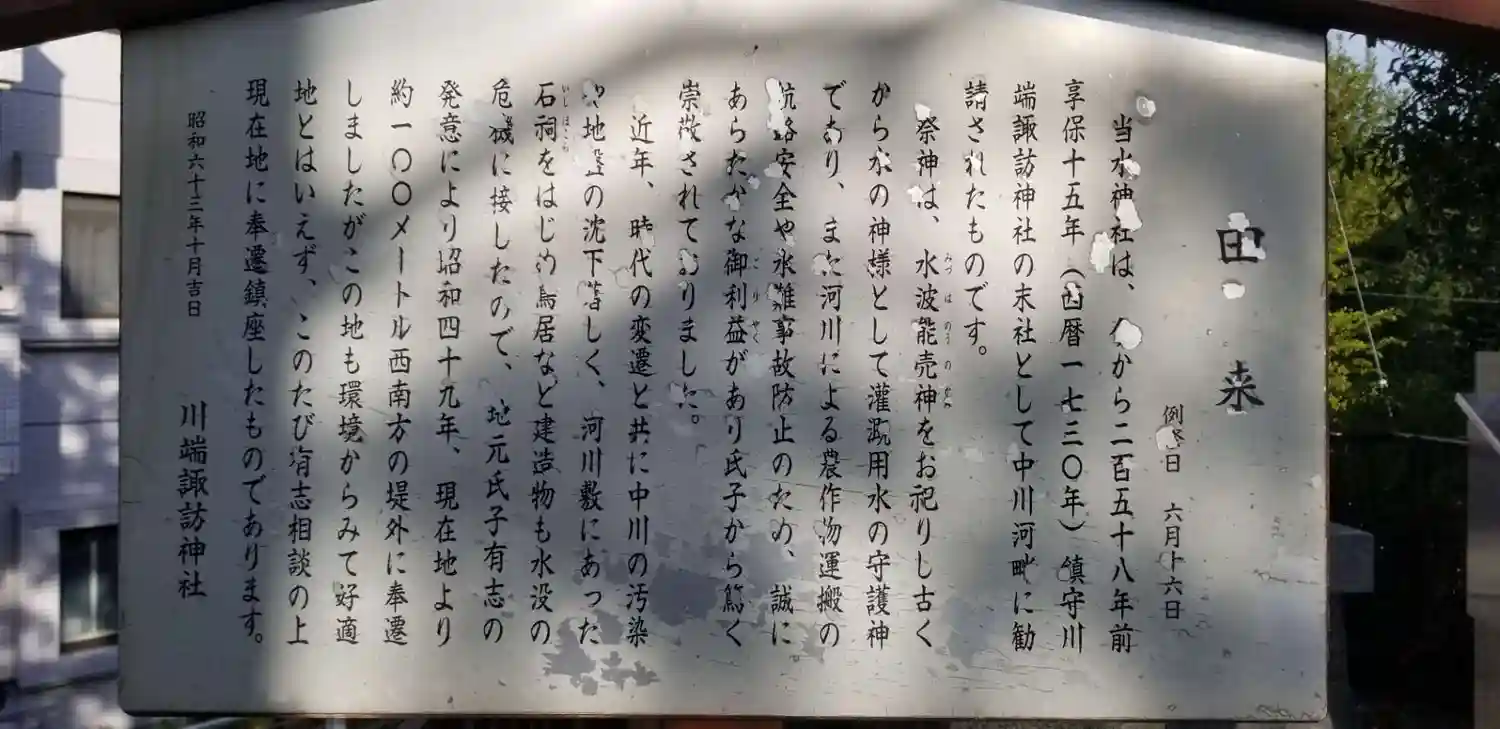 由来
例祭日 六月十六日
当水神社は、今から二百五十八年前
享保十五年(西暦一七三〇年)鎮守川
端諏訪神社の末社として中川河畔に勧
請されたものです。
みづはのうのめ
祭神は、水波能売神をお祀りし古く
から水の神様として灌漑用水の守護神
であり、また河川による農作物運搬の
航路安全や水難事故防止のため、誠に
ごりやく
あらたかな御利益があり氏子から篤く
崇敬されておりました。
近年、時代の変遷と共に中川の汚染
や地盤の沈下著しく、河川敷にあった
いしほこら
石祠をはじめ鳥居など建造物も水没の
危機に接したので、地元氏子有志の
発意により昭和四十九年、現在地より
約一〇〇メートル西南方の堤外に奉遷
しましたがこの地も環境からみて好適
地とはいえず、このたび有志相談の上
現在地に奉遷鎮座したものであります。
昭和六十三年十月吉日
川端諏訪神社